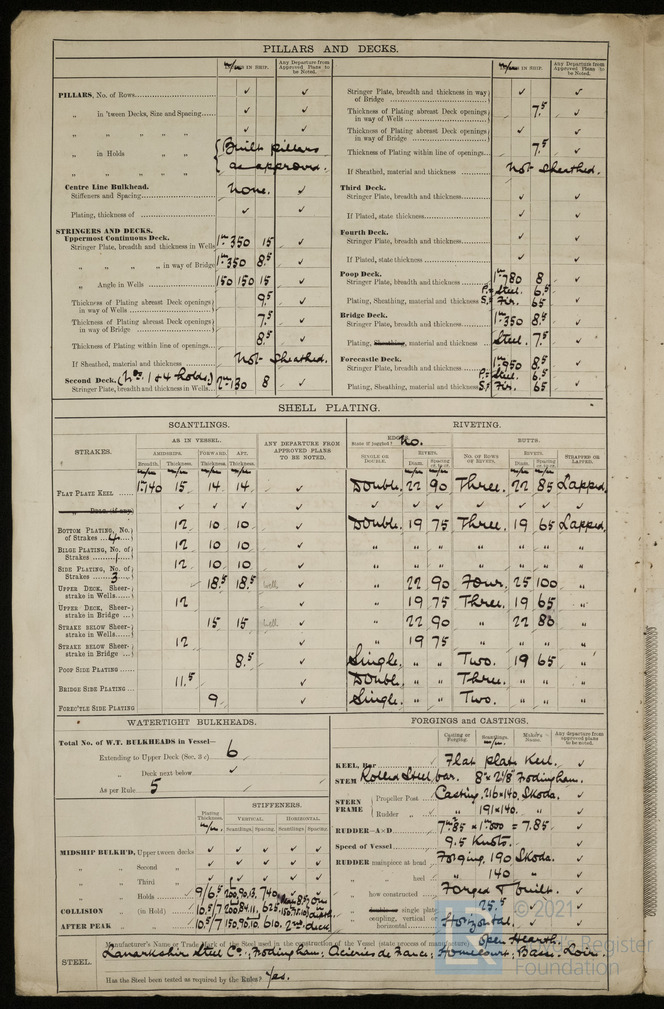 PILLARS AND DECKS.
m/m IN SHIP. Any Departure from Approved Plans to be Noted.
PILLARS, No. of Rows ✓ ✓
„ in 'tween Decks, Size and Spacing ✓ ✓
„ „ „ „ ✓ ✓
„ in Holds { Built pillars
„ „ „ as approved.
Centre Line Bulkhead.
Stiffeners and Spacing None. ✓
Plating, thickness of ✓ ✓
STRINGERS AND DECKS.
Uppermost Continuous Deck.
Stringer Plate, breadth and thickness in Wells 1m 350 15 ✓
„ „ „ „ in way of Bridge 1m 350 8.5 ✓
„ Angle in Wells 150 150 15 ✓
Thickness of Plating abreast Deck openings in way of Wells 9.5 ✓
Thickness of Plating abreast Deck openings in way of Bridge 7.5 ✓
Thickness of Plating within line of openings 8.5 ✓
If Sheathed, material and thickness Not Sheathed.
Second Deck. (Nos. 1 & 4 holds.)
Stringer Plate, breadth and thickness in Wells 2m 130 8 ✓
m/m IN SHIP. Any Departure from Approved Plans to be Noted.
Stringer Plate, breadth and thickness in way of Bridge ✓ ✓
Thickness of Plating abreast Deck openings in way of Wells 7.5 ✓
Thickness of Plating abreast Deck openings in way of Bridge ✓ ✓
Thickness of Plating within line of openings 7.5 ✓
If Sheathed, material and thickness Not Sheathed.
Third Deck.
Stringer Plate, breadth and thickness ✓ ✓
If Plated, state thickness ✓ ✓
Fourth Deck.
Stringer Plate, breadth and thickness ✓ ✓
If Plated, state thickness ✓ ✓
Poop Deck.
Stringer Plate, breadth and thickness 1m 780 8 ✓
P:= Steel. 6.5
Plating, Sheathing, material and thickness S:= Fir. 65 ✓
Bridge Deck.
Stringer Plate, breadth and thickness 1m 350 8.5 ✓
Plating, Sheathing, material and thickness Steel. 7.5 ✓
Forecastle Deck.
Stringer Plate, breadth and thickness 1m 950 8.5 ✓
P:= Steel. 6.5
Plating, Sheathing, material and thickness S:= Fir. 65 ✓
SHELL PLATING.
SCANTLINGS. RIVETING.
STRAKES. AS IN VESSEL. ANY DEPARTURE FROM APPROVED PLANS TO BE NOTED. EDGES. State if joggled? No. BUTTS.
AMIDSHIPS. FORWARD. AFT. SINGLE OR DOUBLE. RIVETS. NO. OF ROWS OF RIVETS. RIVETS. STRAPPED OR LAPPED.
Breadth. Thickness. Thickness. Thickness. Diam. Spacing cr. to cr. Diam. Spacing cr. to cr.
m/m m/m m/m m/m m/m m/m m/m m/m
FLAT PLATE KEEL 1m 140 15 14 14 ✓ Double. 22 90 Three. 22 85 Lapped.
„ DBLG. (if any) ✓ ✓ ✓ ✓ ✓ ✓ ✓ ✓ ✓ ✓
BOTTOM PLATING, No. of Strakes 4 12 10 10 ✓ Double. 19 75 Three. 19 65 Lapped.
BILGE PLATING, No. of Strakes 1 12 10 10 ✓ „ „ „ „ „ „ „
SIDE PLATING, No. of Strakes 3 12 10 10 ✓ „ „ „ „ „ „ „
UPPER DECK, Sheer-strake in Wells 18.5 18.5 well ✓ „ 22 90 Four. 25 100 „
UPPER DECK, Sheer-strake in Bridge 12 ✓ „ 19 75 Three. 19 65 „
STRAKE BELOW Sheer-strake in Wells 15 15 well ✓ „ 22 90 „ 22 80 „
STRAKE BELOW Sheer-strake in Bridge 12 ✓ „ 19 75
POOP SIDE PLATING 8.5 ✓ Single. „ „ Two. 19 65 „
BRIDGE SIDE PLATING 11.5 ✓ Double. „ „ Three. „ „ „
FORE'C'TLE SIDE PLATING 9 ✓ Single. „ „ Two. „ „ „
WATERTIGHT BULKHEADS.
Total No. of W.T. BULKHEADS in Vessel— 6
Extending to Upper Deck (Sec. 3 c) ✓
„ Deck next below ✓
As per Rule 5
Plating Thickness. STIFFENERS.
VERTICAL. HORIZONTAL.
m/m Scantlings. Spacing. Scantlings. Spacing.
MIDSHIP BULKH'D, Upper tween decks ✓ ✓ ✓ ✓ ✓
„ „ Second „ ✓ ✓ ✓ ✓ ✓
„ „ Third „ ✓ ✓ ✓ ✓
„ „ Holds 9/6.5 740
COLLISION „ (in Hold) 10.5/7 625
AFTER PEAK „ „ 10.5/7 150,90,10 610. 2nd deck
FORGINGS and CASTINGS.
Casting or Forging. Scantlings. m/m Maker's Name. Any departure from approved plans to be noted.
KEEL, Bar Flat plate Keel. ✓
STEM Rolled Steel bar. 8" x 2 1/8" Frodingham. ✓
STERN FRAME { Propeller Post Casting. 216 x 140. Skoda. ✓
Rudder „ „ 191 x 140. „ ✓
RUDDER—A×D ✓
Speed of Vessel 9.5 Knots. ✓
RUDDER mainpiece at head Forging. 190 Skoda. ✓
„ „ heel „ 140 „ ✓
„ how constructed Forged & built. ✓
„ double single plate 25.5 ✓
„ coupling, vertical or horizontal Horizontal. ✓
STEEL. Manufacturer's Name or Trade Mark of the Steel used in the construction of the Vessel (state process of manufacture) Open Hearth.
Lanarkshire Steel Co.; Frodingham; Acieries de France; Homecourt; Basse-Loire.
Has the Steel been tested as required by the Rules? Yes.
© 2021
Lloyd's Register
Foundation